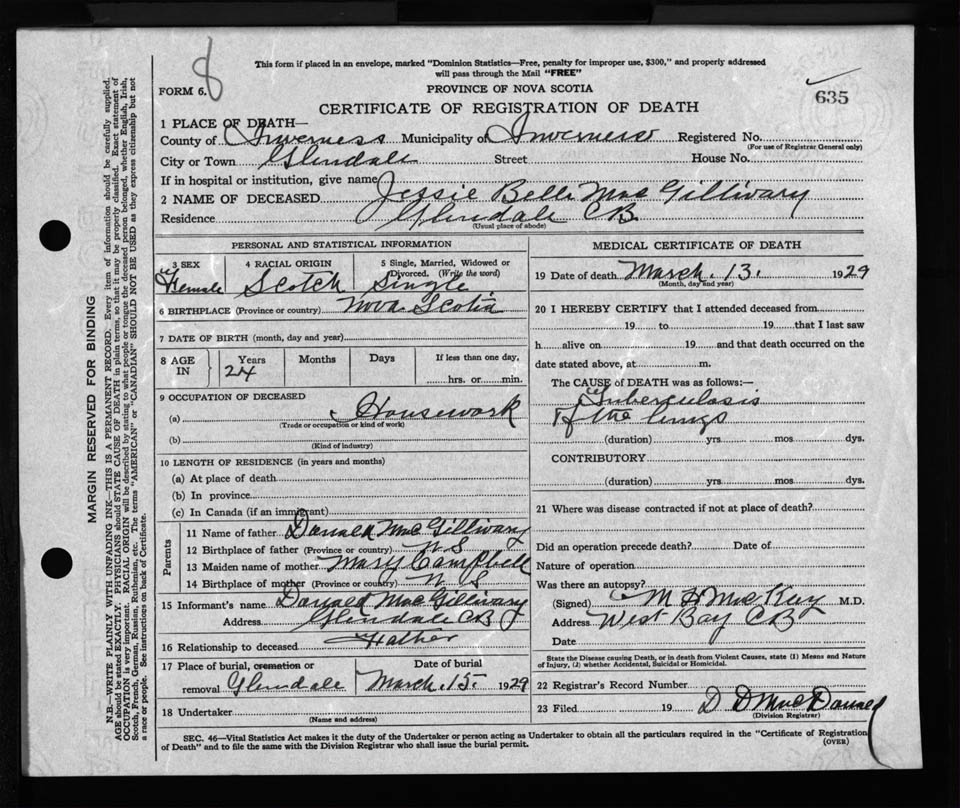 8
This form if placed in an envelope, marked "Dominion Statistics—Free, penalty for improper use, $300," and properly addressed
will pass through the Mail "FREE"
FORM 6.
PROVINCE OF NOVA SCOTIA
635
CERTIFICATE OF REGISTRATION OF DEATH
1 PLACE OF DEATH—
County of Inverness Municipality of Inverness Registered No.
(For use of Registrar General only)
City or Town Glendale Street House No.
If in hospital or institution, give name
2 NAME OF DECEASED Jessie Belle Mac Gillivary
Residence Glendale CB.
(Usual place of abode)
PERSONAL AND STATISTICAL INFORMATION
3 SEX Female
4 RACIAL ORIGIN Scotch
5 Single, Married, Widowed or Divorced. (Write the word) Single
6 BIRTHPLACE (Province or country) Nova Scotia
7 DATE OF BIRTH (month, day and year)
8 AGE IN Years 24 Months Days If less than one day, hrs. or min.
9 OCCUPATION OF DECEASED
(a) Housework
(Trade or occupation or kind of work)
(b)
(Kind of industry)
10 LENGTH OF RESIDENCE (in years and months)
(a) At place of death
(b) In province
(c) In Canada (if an immigrant)
Parents
11 Name of father Donald Mac Gillivary
12 Birthplace of father (Province or country) N S
13 Maiden name of mother Mary Campbell
14 Birthplace of mother (Province or country) N S
15 Informant's name Donald Mac Gillivary
Address Glendale CB
16 Relationship to deceased Father
17 Place of burial, cremation or removal Glendale
Date of burial March 15 1929
18 Undertaker
(Name and address)
MEDICAL CERTIFICATE OF DEATH
19 Date of death March. 13. 1929
(Month, day and year)
20 I HEREBY CERTIFY that I attended deceased from
19 to 19 that I last saw
h alive on 19 and that death occurred on the
date stated above, at m.
The CAUSE OF DEATH was as follows:—
Tuberculosis
of the lungs
(duration) yrs. mos. dys.
CONTRIBUTORY
(duration) yrs. mos. dys.
21 Where was disease contracted if not at place of death?
Did an operation precede death? Date of
Nature of operation
Was there an autopsy?
(Signed) M H Mac Kay M.D.
Address West Bay CB
Date
State the Disease causing Death, or in death from Violent Causes, state (1) Means and Nature
of Injury, (2) whether Accidental, Suicidal or Homicidal.
22 Registrar's Record Number
23 Filed 19 D D Mac Donald
(Division Registrar)
SEC. 46—Vital Statistics Act makes it the duty of the Undertaker or person acting as Undertaker to obtain all the particulars required in the "Certificate of Registration
of Death" and to file the same with the Division Registrar who shall issue the burial permit.
(OVER)
MARGIN RESERVED FOR BINDING
N.B.—WRITE PLAINLY WITH UNFADING INK—THIS IS A PERMANENT RECORD. Every item of information should be carefully supplied.
AGE should be stated EXACTLY. PHYSICIANS should STATE CAUSE OF DEATH in plain terms, so that it may be properly classified. Exact statement of
OCCUPATION is very important. RACIAL ORIGIN will be described by stating to what people or tongue the deceased person belonged, whether English, Irish,
Scotch, French, German, Russian, Ruthenian, etc. The terms "AMERICAN" or "CANADIAN" SHOULD NOT BE USED as they express citizenship but not
a race or people. See instructions on back of Certificate.